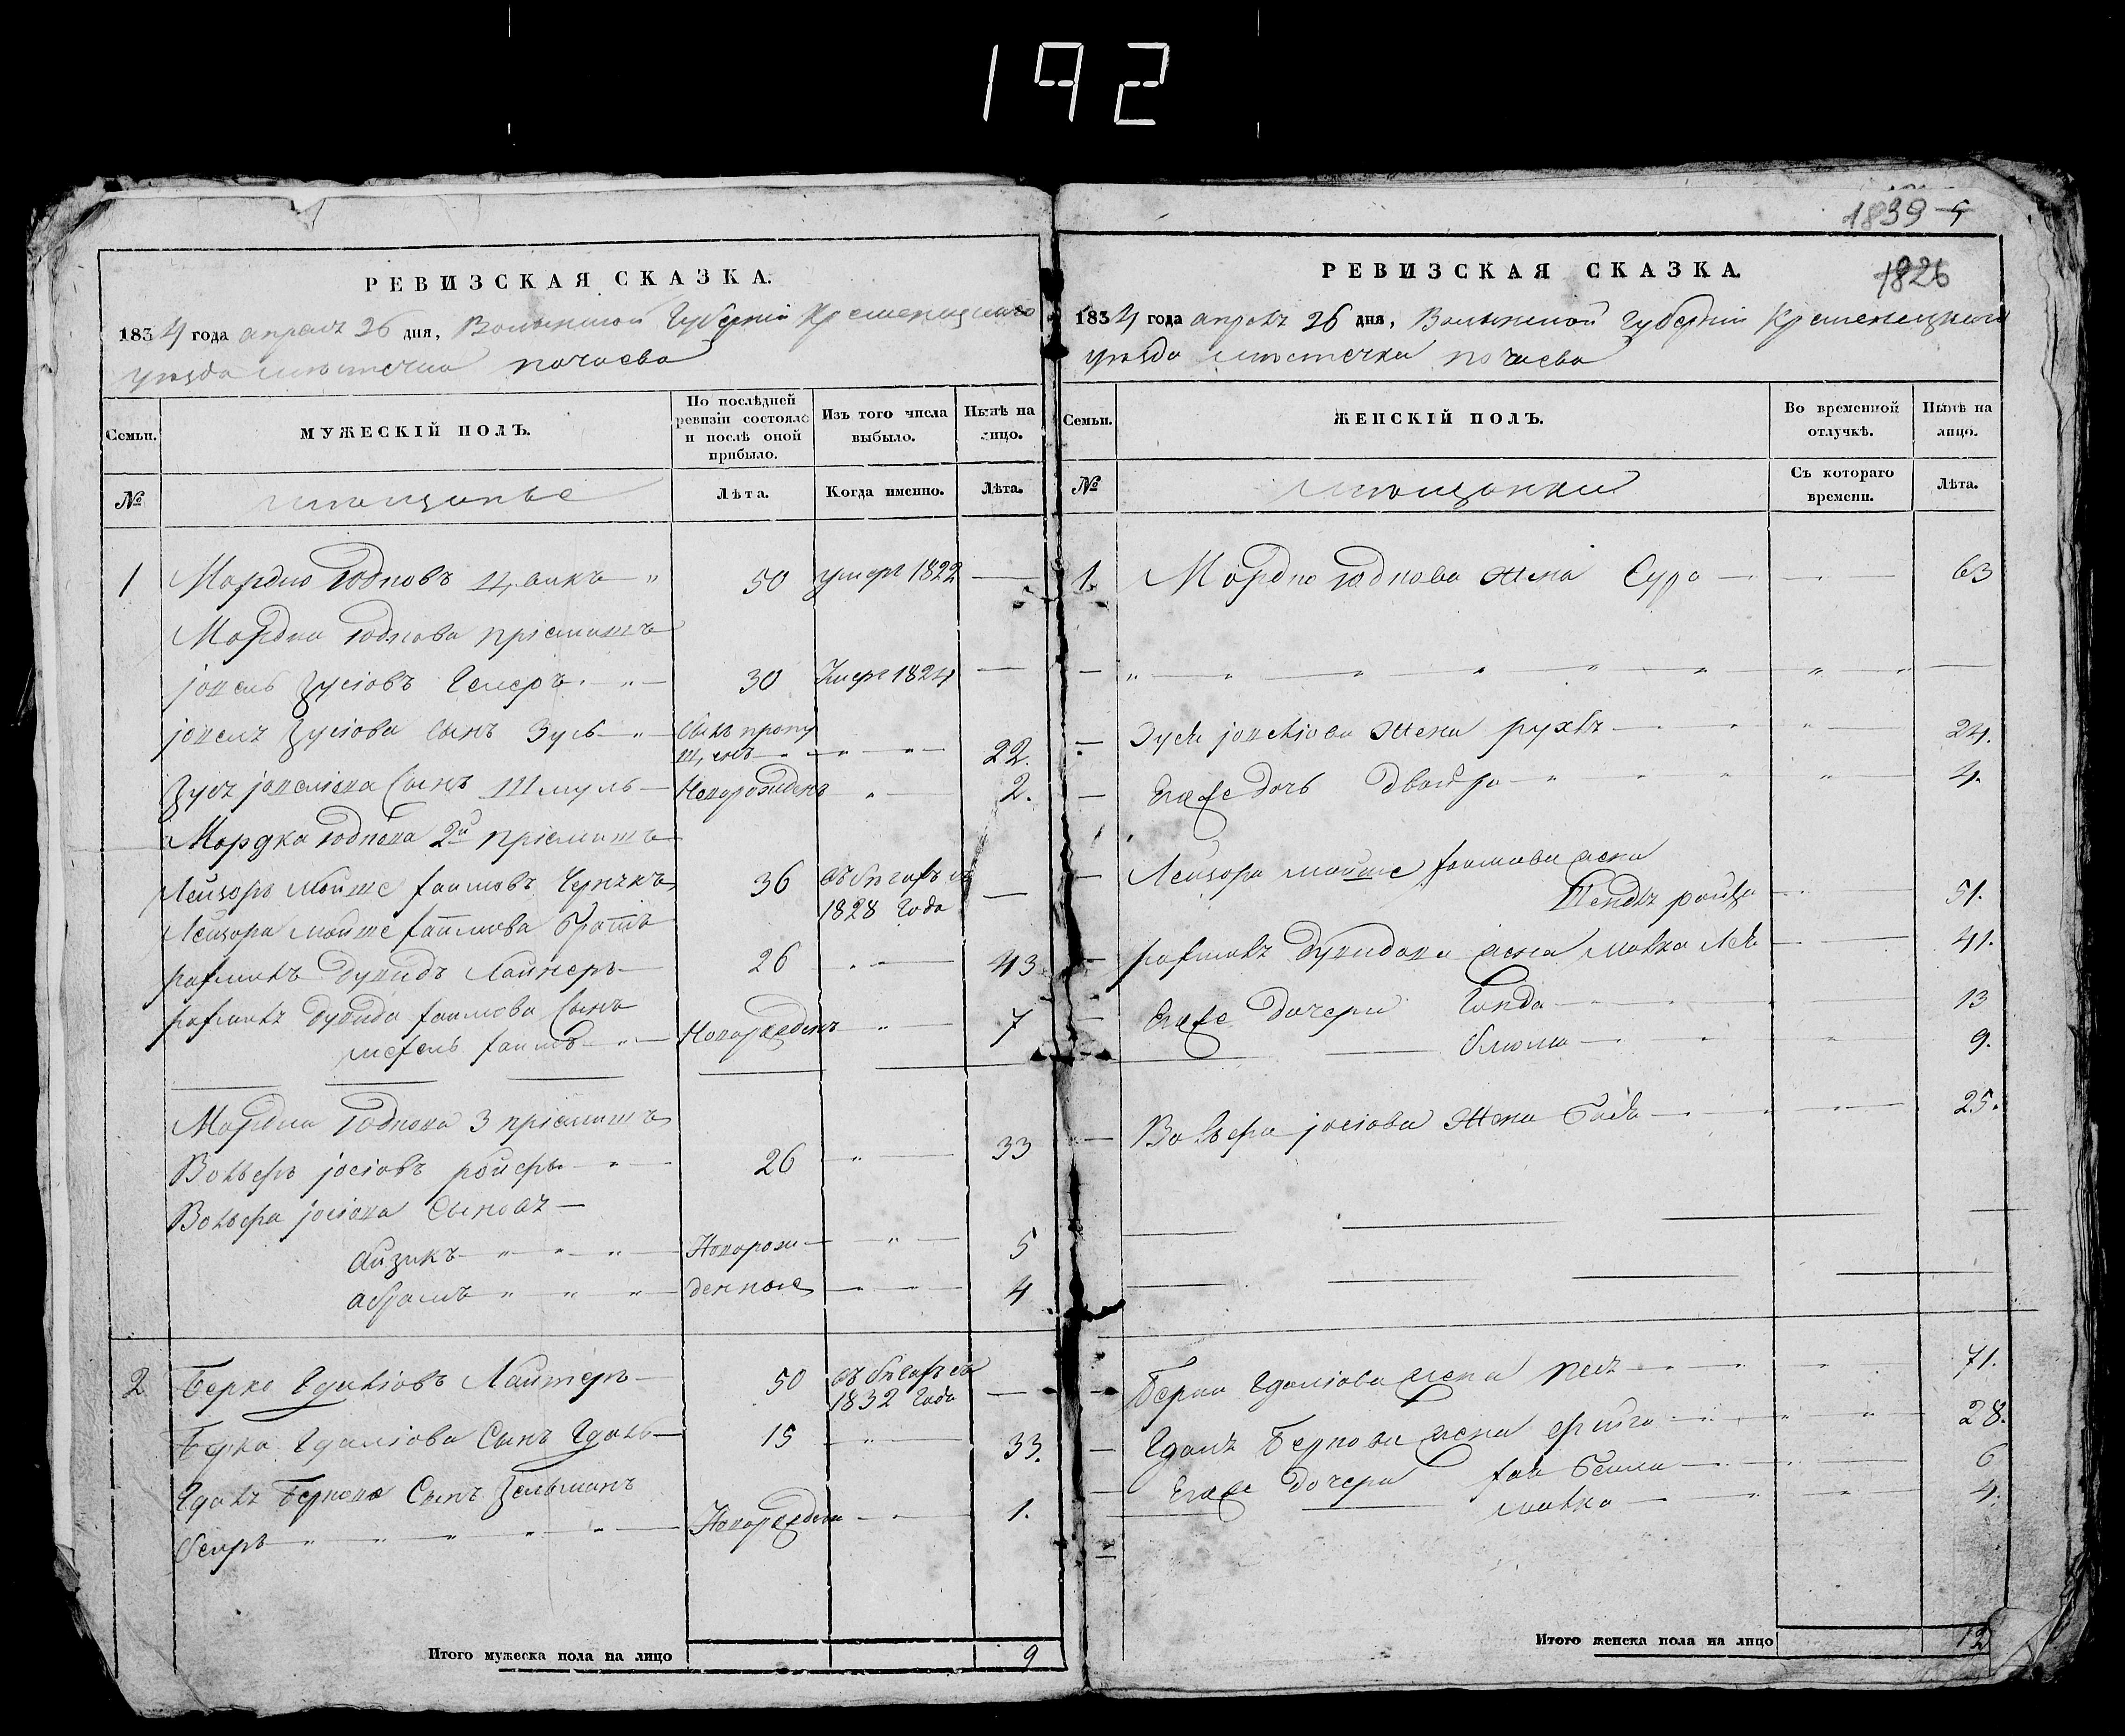 192
РЕВИЗСКАЯ СКАЗКА.
1834 года апреля 26 дня, Волынской Губернии Кременецкаго
уезда местечка почаева
Семьи.
МУЖЕСКІЙ ПОЛЪ.
По послѣдней ревизіи состояло и послѣ оной прибыло.
Изъ того числа выбыло.
Нынѣ на лицо.
№
мещанъе
Лѣта.
Когда именно.
Лѣта.
1 Мордко Юдковъ 50 умеръ 1822 —
Мордка Юдкова пріемышъ
іосель Зусіовъ 30 Умеръ 1824 —
іоселя Зусіова сынъ Зусь былъ пропу
щенъ 22.
Зуся іоселіова Сынъ Шмуль Новорожденъ 2.
Мордка Юдкова 2й пріемышъ
Лейзоръ Мойше 36 въ бегахъ съ
1828 Года —
Лейзора мойше хаимова братъ
26 43
хаимова Сынъ
хаимъ Новорожденъ 7
Мордка Юдкова 3 пріемышъ
Вольфъ іосіовъ ройферъ 26 33
Вольфа іосіова Сыновья
айзикъ Новорож 5
абрамъ денные 4
2 Берко Гдаліовъ Лайтеръ 50 въ бегахъ съ
1832 Года —
Берка Гдаліова Сынъ Гдаль 15 33.
Гдаля Беркова Сынъ Зельманъ
Новорожденъ 1.
Итого мужеска пола на лицо 9
1839
5
1826
РЕВИЗСКАЯ СКАЗКА.
1834 года апреля 26 дня, Волынской Губерніи Кременецкаго
уезда местечка почаева
Семьи.
ЖЕНСКІЙ ПОЛЪ.
Во временной отлучкѣ.
Нынѣ на лицо.
№
мещанки
Съ котораго времени.
Лѣта.
1. Мордко Юдкова жена Сура 63
Зуся іоселіова жена рухля 24.
Егоже дочь Двойра 4.
Лейзора мойше хаимова жена
Шендля ройза 51.
жена малка лея 41.
Егоже дочери Гинда 13
блюма 9.
Вольфа іосіова жена бася 25.
Берка Гдаліова жена 71.
Гдаля Беркова жена фейга 28.
Егоже дочери хая бейла 6
малка 4.
Итого женска пола на лицо 12